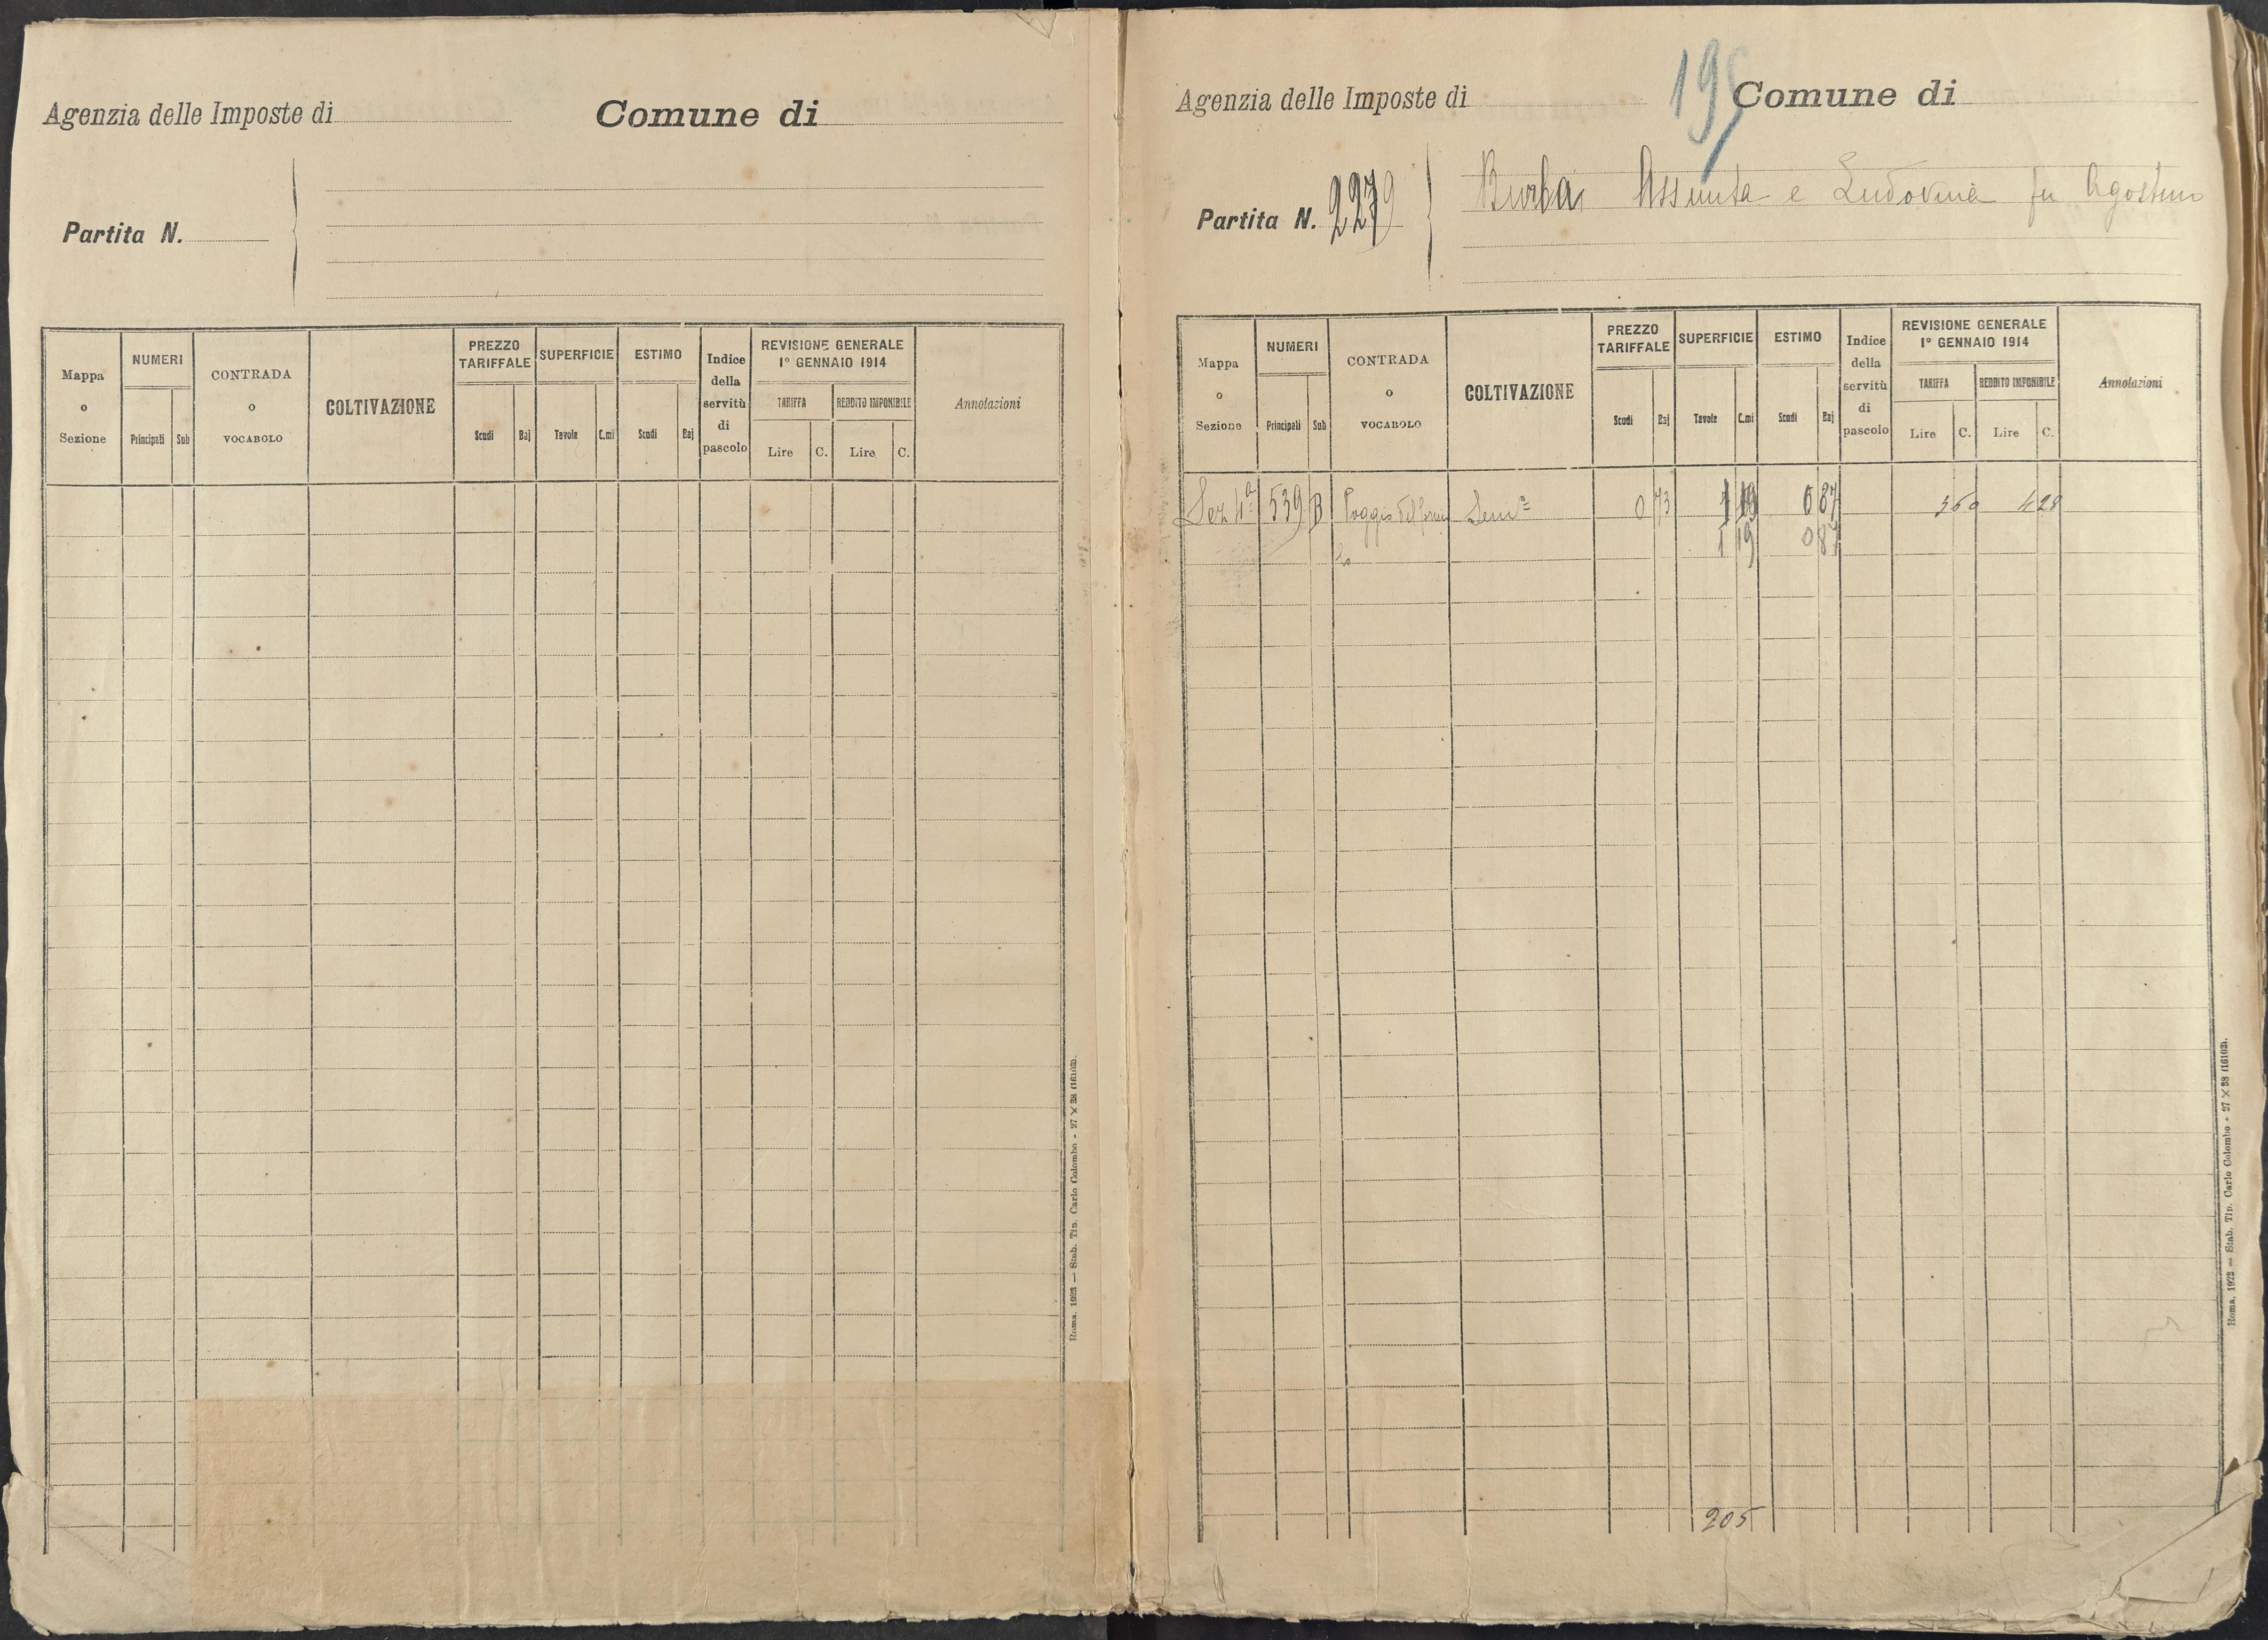 Agenzia delle Imposte di
Comune di
Partita N.
Mappa o Sezione
NUMERI
Principali
Sub
CONTRADA o VOCABOLO
COLTIVAZIONE
PREZZO TARIFFALE
Scudi
Baj
SUPERFICIE
Tavole
C.mi
ESTIMO
Scudi
Baj
Indice della servitù di pascolo
REVISIONE GENERALE
1° GENNAIO 1914
TARIFFA
REDDITO IMPONIBILE
Lire
C.
Lire
C.
Annotazioni
Roma, 1923 — Stab. Tip. Carlo Colombo - 27 X 38 (16103).
Agenzia delle Imposte di
195
Comune di
Partita N. 2279
Assunta e fu Agostino
Mappa o Sezione
NUMERI
Principali
Sub
CONTRADA o VOCABOLO
COLTIVAZIONE
PREZZO TARIFFALE
Scudi
Baj
SUPERFICIE
Tavole
C.mi
ESTIMO
Scudi
Baj
Indice della servitù di pascolo
REVISIONE GENERALE
1° GENNAIO 1914
TARIFFA
REDDITO IMPONIBILE
Lire
C.
Lire
C.
Annotazioni
Sez 1ª 539 B Poggio Semº 0 73 1 19 0 87 3 60 4 28
1 19 0 87
205
Roma, 1923 — Stab. Tip. Carlo Colombo - 27 X 38 (16103).